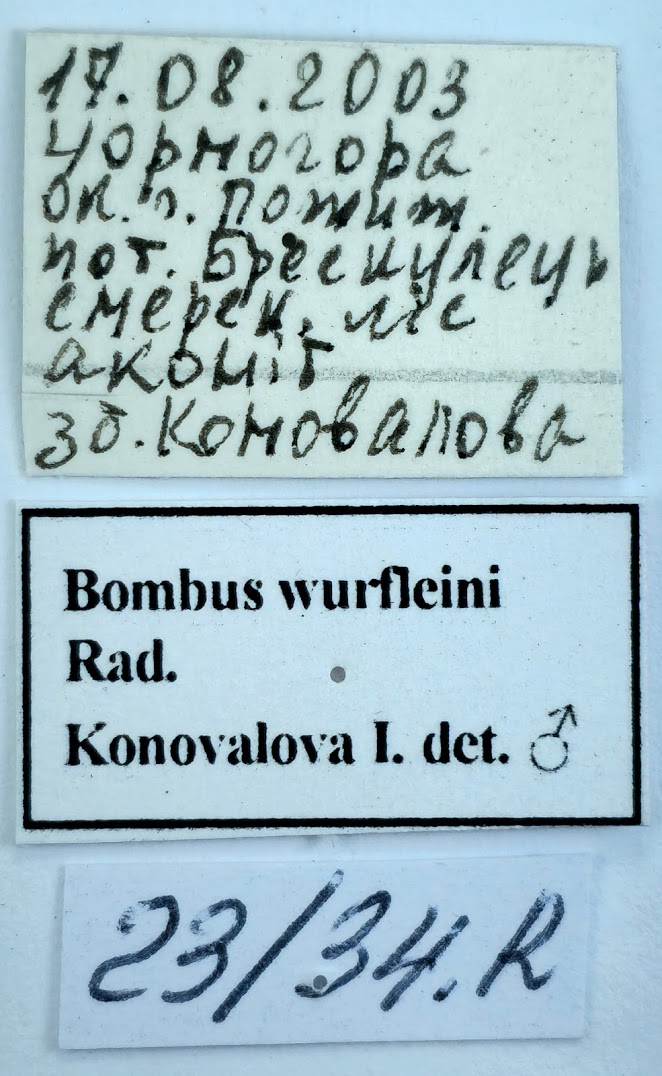 17.08.2003
Чорногора
ок. г. Пожиж.
пот. Брескулець
смерек. ліс
аконіт
зб. Коновалова
Bombus wurfleini
Rad.
Konovalova I. det. ♂
23/34.R